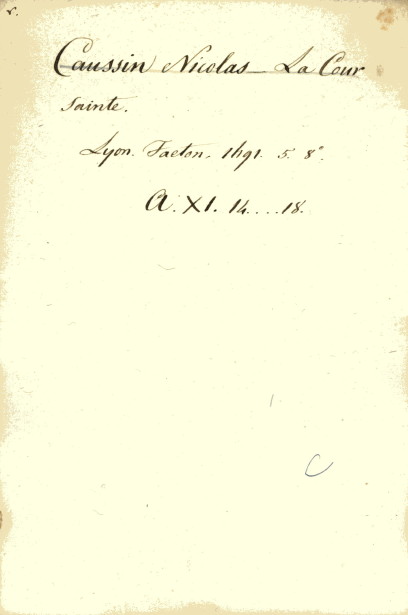 v.
Caussin Nicolas — La Cour
Sainte.
Lyon. Faeton. 1691. 5. 8°.
A. XI. 14....18.
C